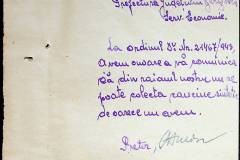 Prefectura Județului
Serv. Economic.
La ordinul Dv. Nr. 21467/943,
Avem onoare a vă comunica
că din raionul nostru nu se
poate colecta
de oarece nu avem.
Pretor,